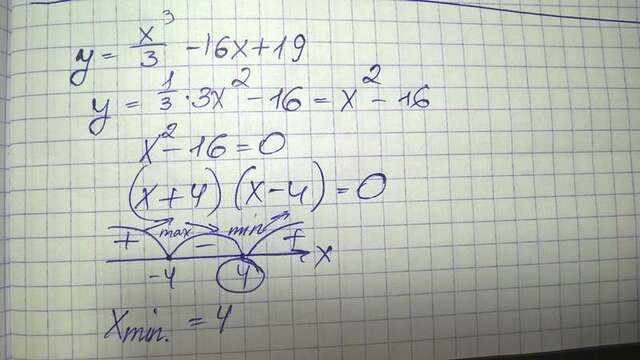 y = x³/3 - 16x + 19
y = 1/3 · 3x² - 16 = x² - 16
x² - 16 = 0
(x + 4) (x - 4) = 0
+ max - min + x
-4 4
Xmin. = 4